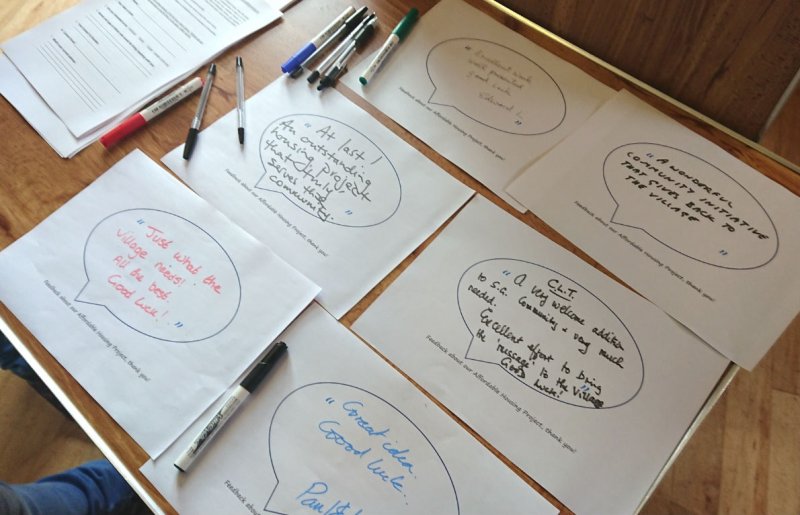 "Excellent work
well presented
good luck
Edward
"
Feedback about our Affordable Housing Project, thank you!
"At last!
An outstanding
housing project
that truly
serves the
community."
Feedback about our Affordable Housing Project, thank you!
"A WONDERFUL
COMMUNITY INITIATIVE
THAT GIVES BACK TO
THE VILLAGE
"
Feedback about our Affordable Housing Project, thank you!
"Just what the
village needs!
All the best.
Good luck!"
Feedback about our Affordable Housing Project, thank you!
C.L.T.
"A very welcome addition
to S.G. Community & very much
needed.
Excellent effort to bring
the 'message' to the Village
Good luck!"
Feedback about our Affordable Housing Project, thank you!
"Great idea.
Good luck.
Paul
Feedback about our